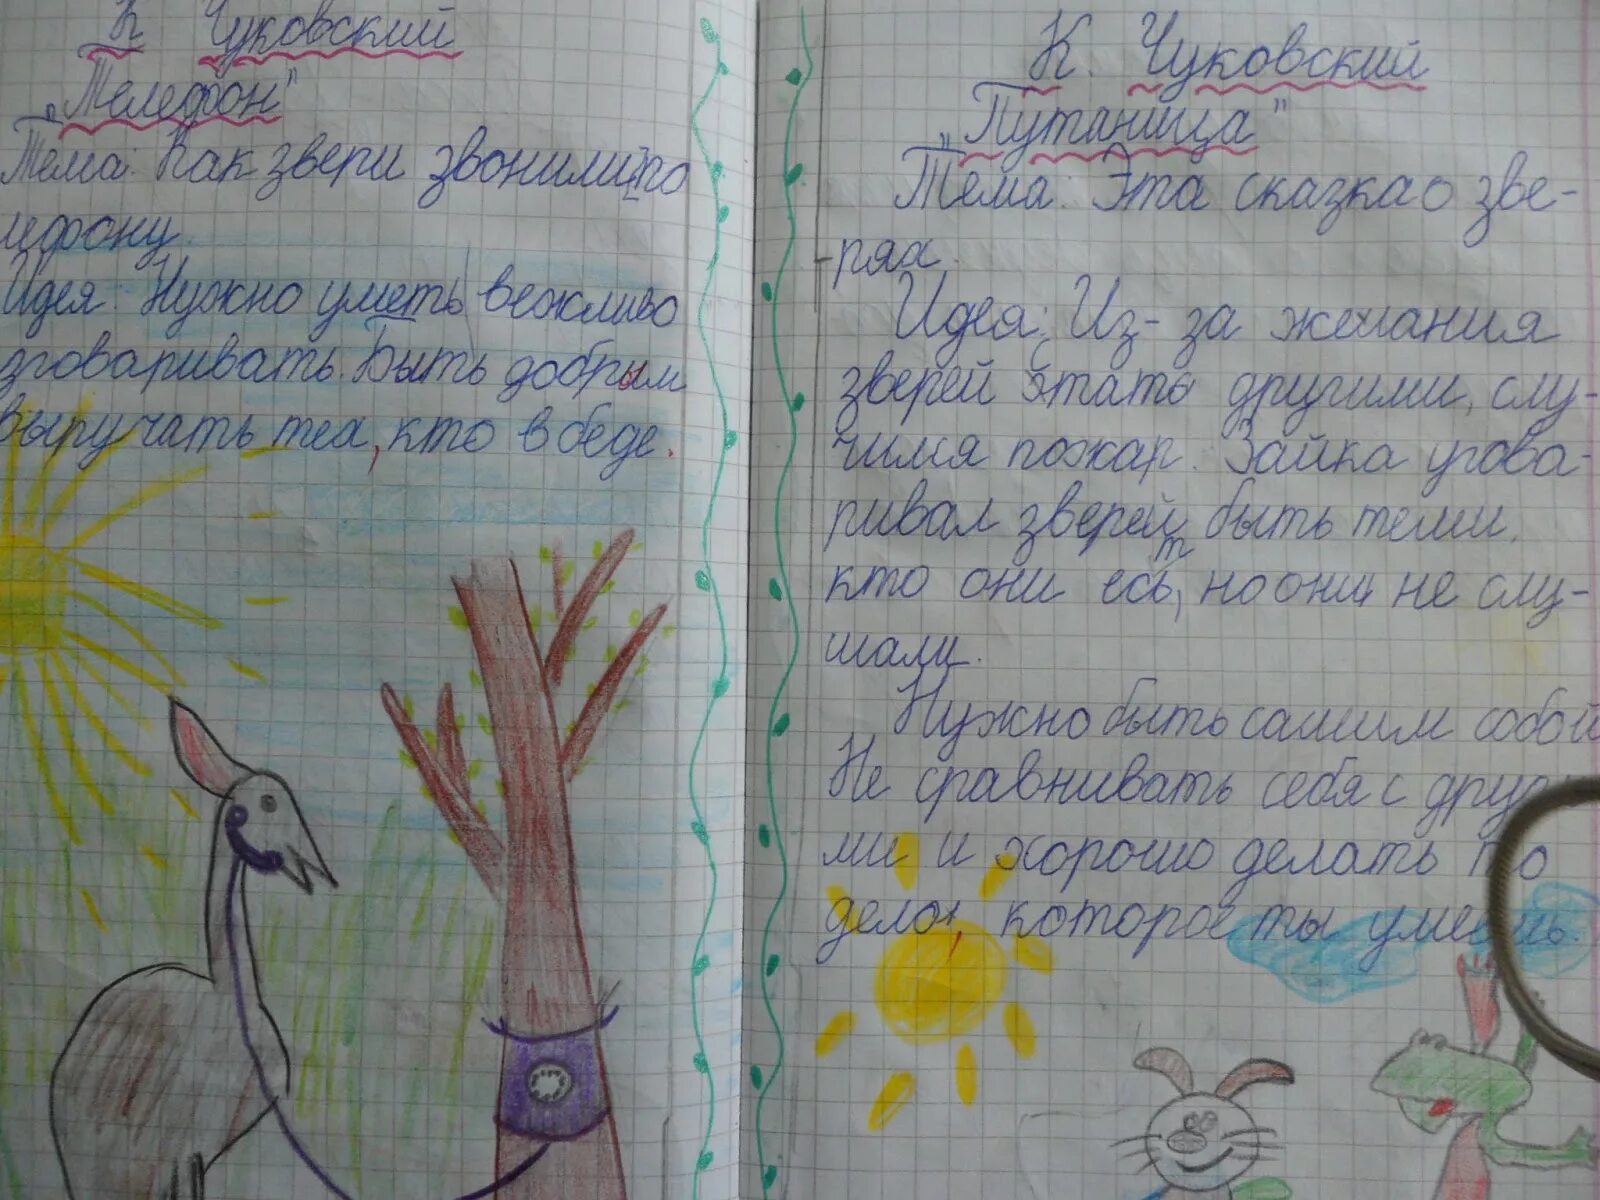 К Чуковский
„Телефон"
Тема: Как звери звонили по
лефону.
Идея: Нужно уметь вежливо
зговаривать. Быть добрым
выручать тех, кто в беде.
К. Чуковский
„Путаница"
Тема: Эта сказка о зве-
-рях.
Идея: Из-за желания
зверей стать другими, слу-
чился пожар. Зайка угова-
ривал зверей быть теми,
кто они есть, но они не слу-
шали.
Нужно быть самим собой
Не сравнивать себя с друг
ми и хорошо делать то
дело, которое ты умеешь.